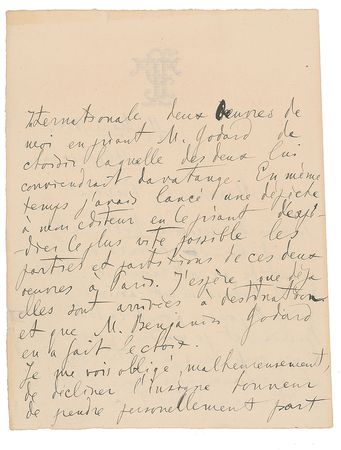 Internationale, deux Oeuvres de
moi en priant M. Godard de
choisir laquelle des deux lui
conviendrait davatange. En même
temps j'avais lancé une dépêche
à mon éditeur en le priant d'expé-
dier le plus vite possible les
parties et partitions de ces deux
oeuvres à Paris. J'espère que déjà
elles sont arrivées à destination
et que M. Benjamin Godard
en a fait le choix.
Je me vois obligé, malheureusement,
de décliner l'insigne honneur
de prendre personellement part